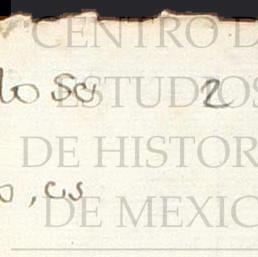 CENTRO D
lo Se 2
ESTUDIOS
DE HISTOR
o, es
DE MEXIC